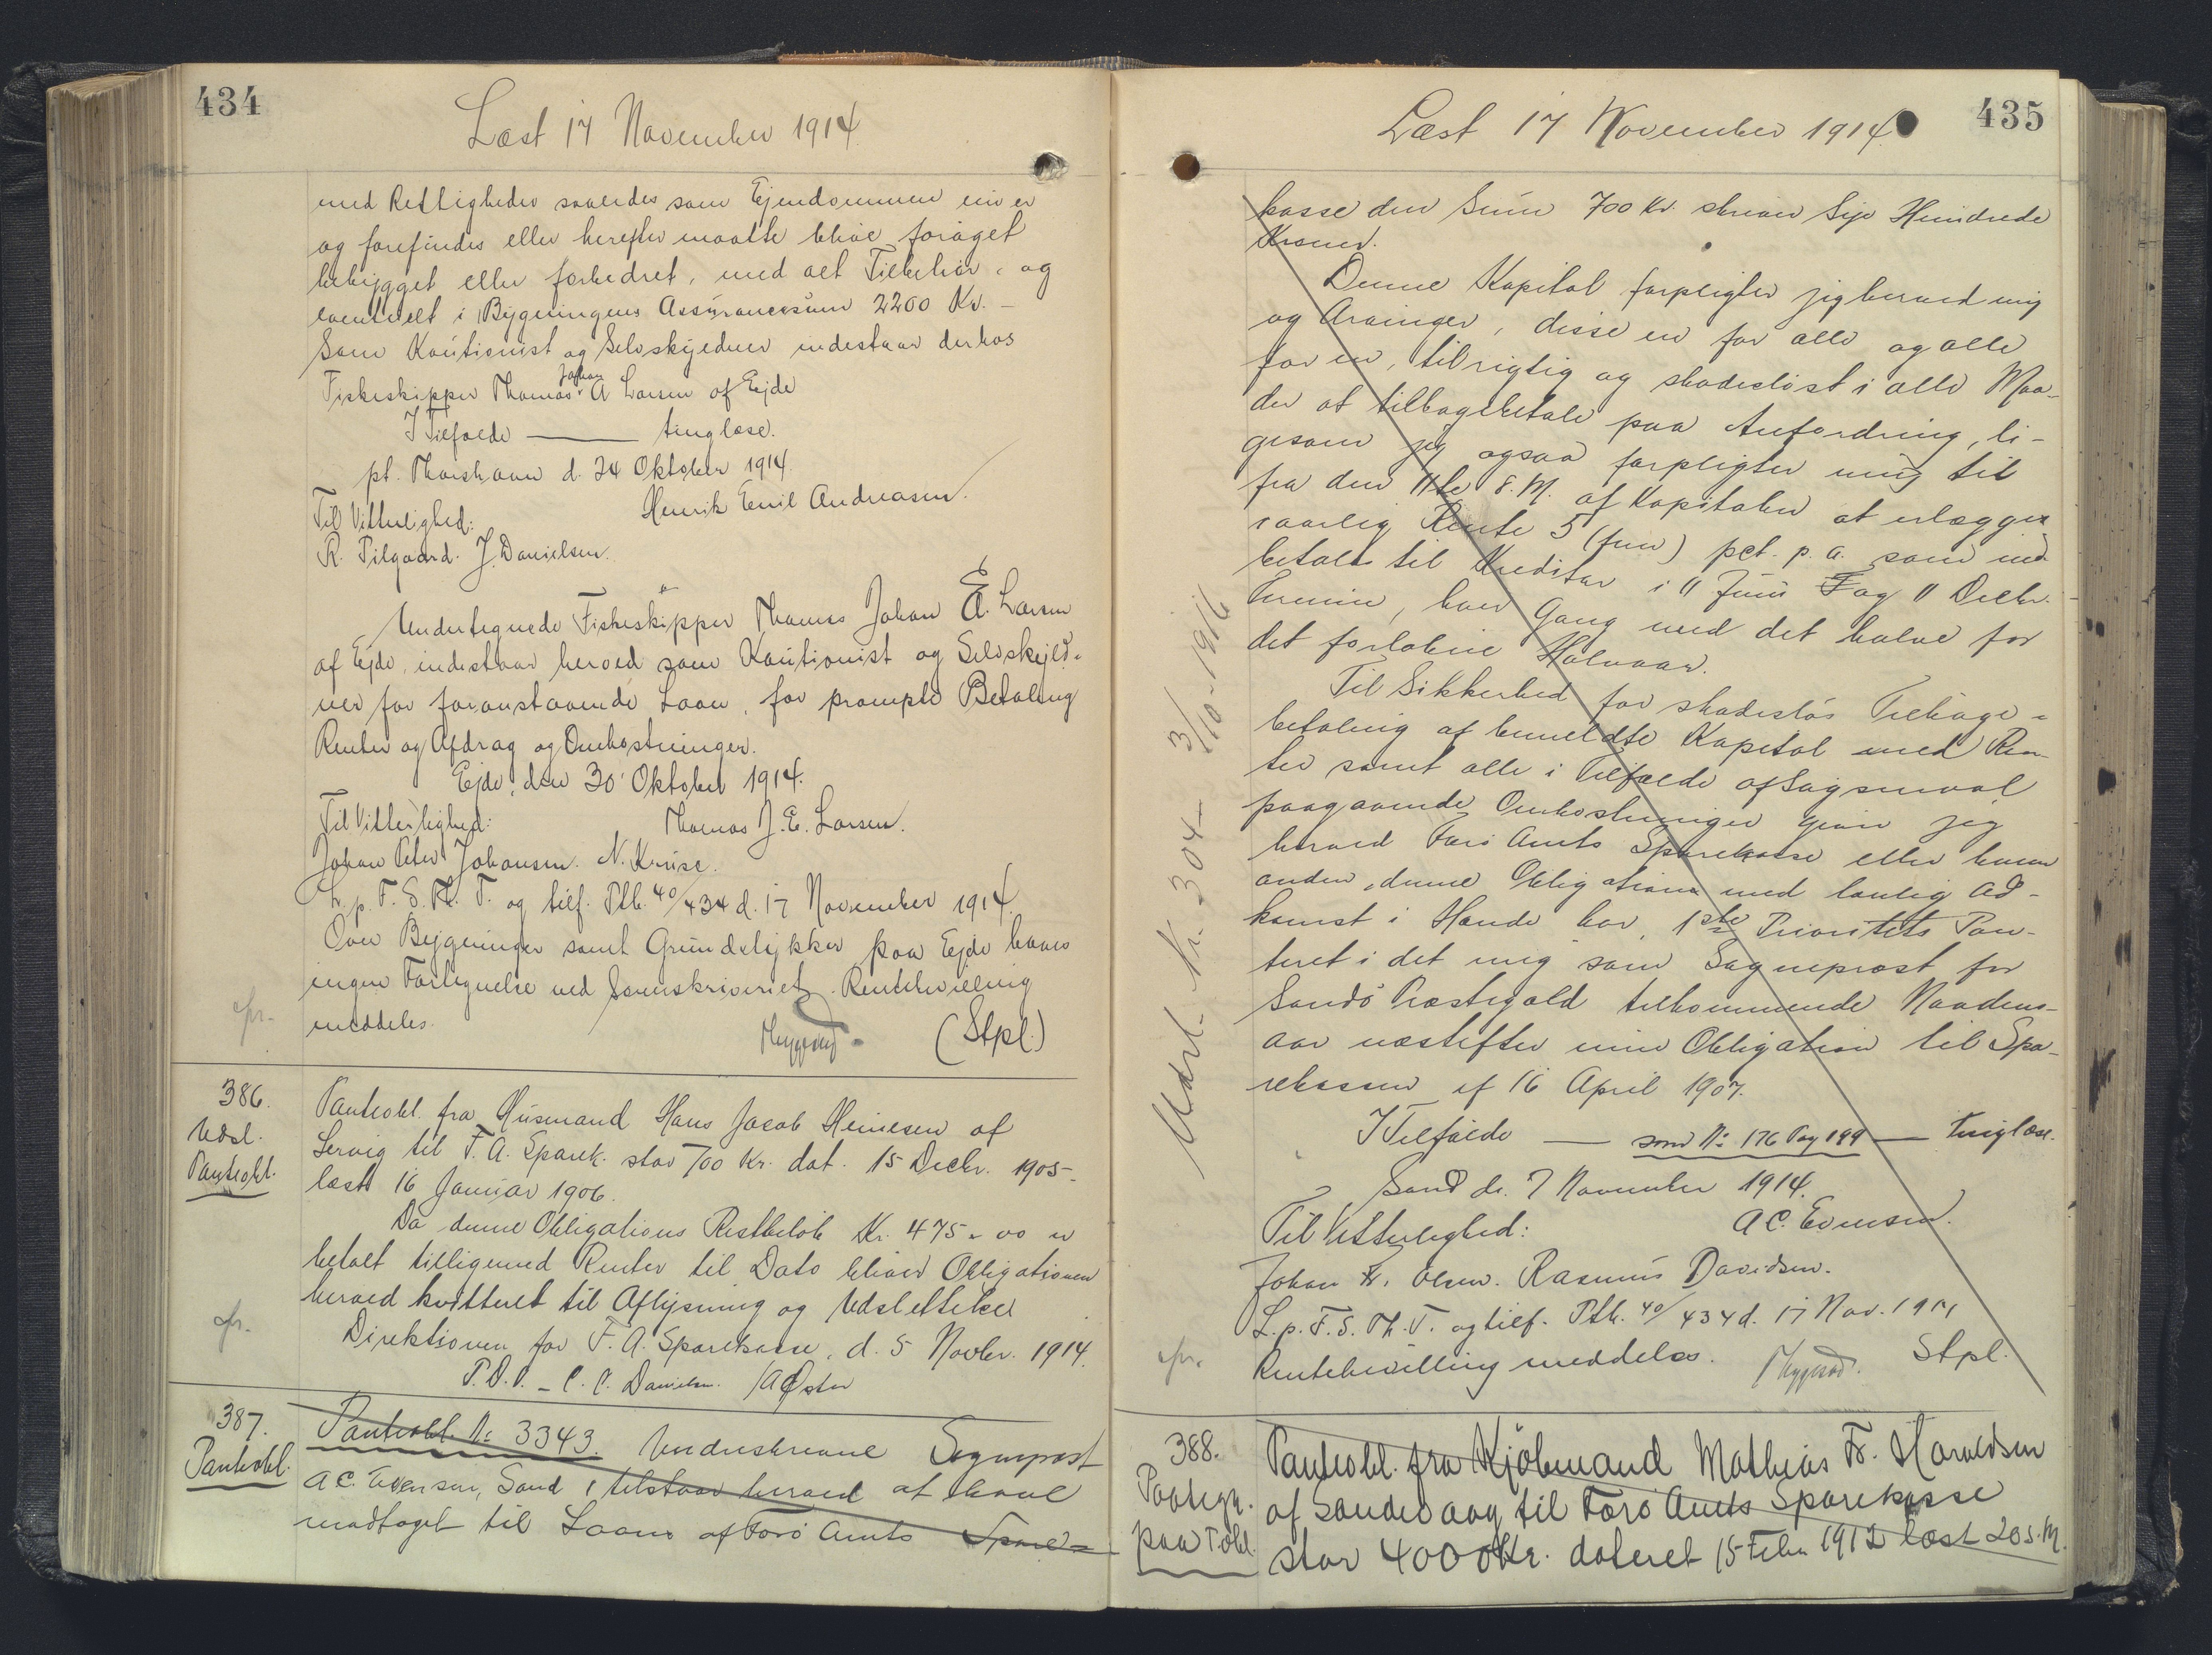 434
Læst 17 November 1914.
med Rettigheder saaledes som Ejendommen nu er
og forefindes eller herefter maatte blive forøget
bebygget eller forbedret, med alt Tilbehør, og
eventuelt i Bygningens Assurancesum 2200 Kr. –
Som Kautionist og Selvskyldner indestaar derhos
Fiskeskipper Thomas Johan A Larsen af Ejde
I Tilfælde ——— tinglæse.
pt. Thorshavn d. 24 Oktober 1914.
Til Vitterlighed: Henrik Emil Andreasen.
R. Pilgaard. J. Danielsen.
Undertegnede Fiskeskipper Thomas Johan E. Larsen
af Ejde, indestaar herved som Kautionist og Selvskyld-
ner for foranstaaende Laan, for prompte Betaling
Renter og Afdrag og Omkostninger.
Ejde, den 30 Oktober 1914.
Til Vitterlighed: Thomas J. E. Larsen.
Johan Peter Johansen. N. Kruse.
L. p. F. S. Th. T. og tilf. Ptb. 40/434 d. 17 November 1914.
Over Bygninger samt Grundstykker paa Ejde haves
ingen Fortegnelse ved Sorenskriveriet. Rentebevilling
meddeles. (Stpl.)
386.
Udsl.
Panteobl.
Panteobl. fra Husmand Hans Jacob Heinesen af
Lervig til F. A. Sparek. stor 700 Kr. dat. 15 Decbr. 1905 –
læst 16 Januar 1906.
Da denne Obligations Restbeløb Kr. 475 - 00 er
betalt tilligemed Renter til Dato bliver Obligationen
herved kvitteret til Aflysning og Udslettelse
Direktionen for F. A. Sparekasse, d. 5 Novbr. 1914.
P. D. V. – C. C. Danielsen. / A Øster
387.
Panteobl.
Panteobl. No 3343. Underskrevne Sognepræst
A C. Evensen, Sand, tilstaar herved at have
modtaget til Laans af Færø Amts Spare-
435
Læst 17 November 1914.
kasse den Sum 700 Kr. skriver Syv Hundrede
Kroner.
Denne Kapital forpligter jeg herved mig
og Arvinger, disse en for alle og alle
for en, til rigtig og skadesløst i alle Maa-
der at tilbagebetale paa Anfordring, li-
gesom jeg ogsaa forpligter mig til
fra den 11te d. M. af Kapitalen at erlægge
i aarlig Rente 5 (fem) pct. p. a. som ind
betales til Kreditor i 11 Juni og 11 Decbr.
Termin, hver Gang med det halve for
det forløbne Halvaar.
Til Sikkerhed for skadesløs Tilbage-
betaling af bemeldte Kapital med Ren-
ter samt alle i Tilfælde af Søgsmaal
paagaaende Omkostninger giver jeg
herved Færø Amts Sparekasse eller hvem
anden, denne Obligation med lovlig Ad-
komst i Hænde har, 1ste Prioritets Pan-
teret i det mig som Sognepræst for
Sandø Præstegjæld tilkommende Naadens-
aar næstefter min Obligation til Spa-
rekassen af 16 April 1907.
I Tilfælde — som No 176 Pag 199 — tinglæse.
Sand d. 7 November 1914.
Til Vitterlighed: A C. Evensen.
Johan Fr. Olsen. Rasmus Davidsen.
L. p. F. S. Th. T. og tilf. Ptb. 40/434 d. 17 Nov. 1914
Rentebevilling meddeles. Stpl.
Udsl. Nr. 304 – 3/10 - 1916
388.
Paategn.
paa Pobl.
Panteobl. fra Kjøbmand Mathias Fr. Haraldsen
af Sandevaag til Færø Amts Sparekasse
stor 4000 Kr. dateret 15 Febr 1912 læst 20 s. M.